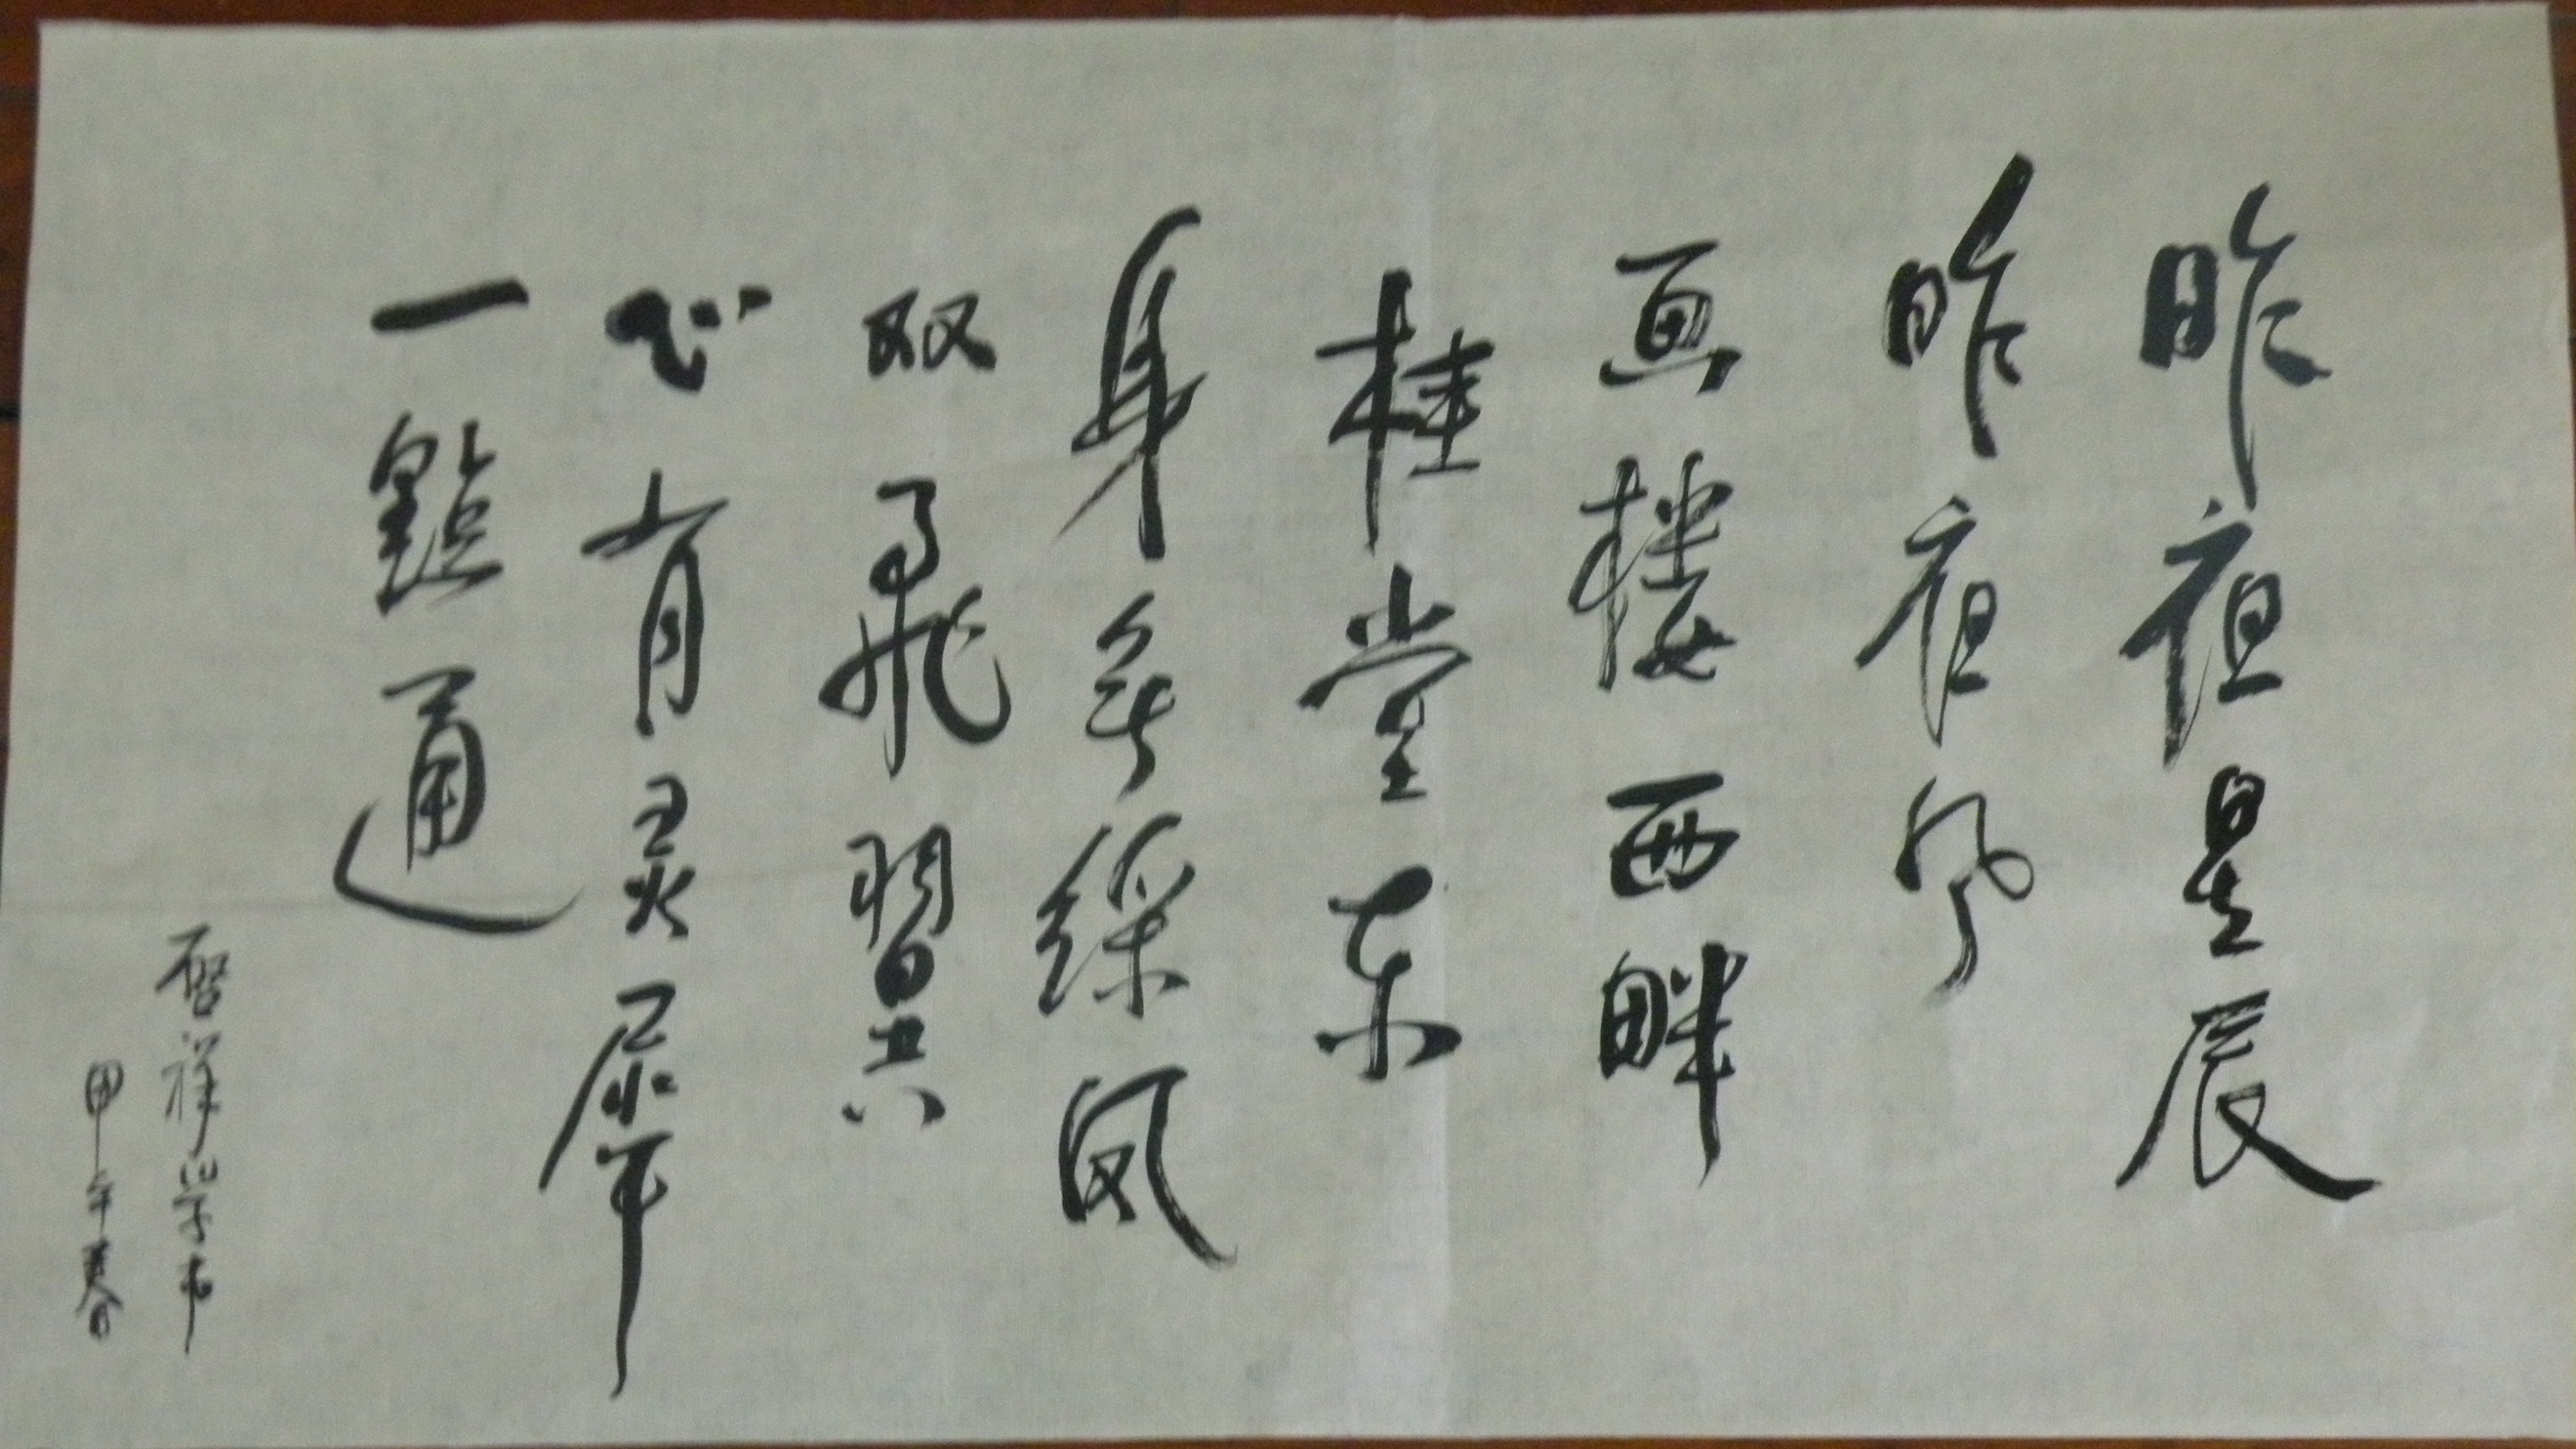 昨夜星辰
昨夜风
画楼西畔
桂堂东
身無綵凤
双飛翼
心有灵犀
一點通
启祥学书
甲午春